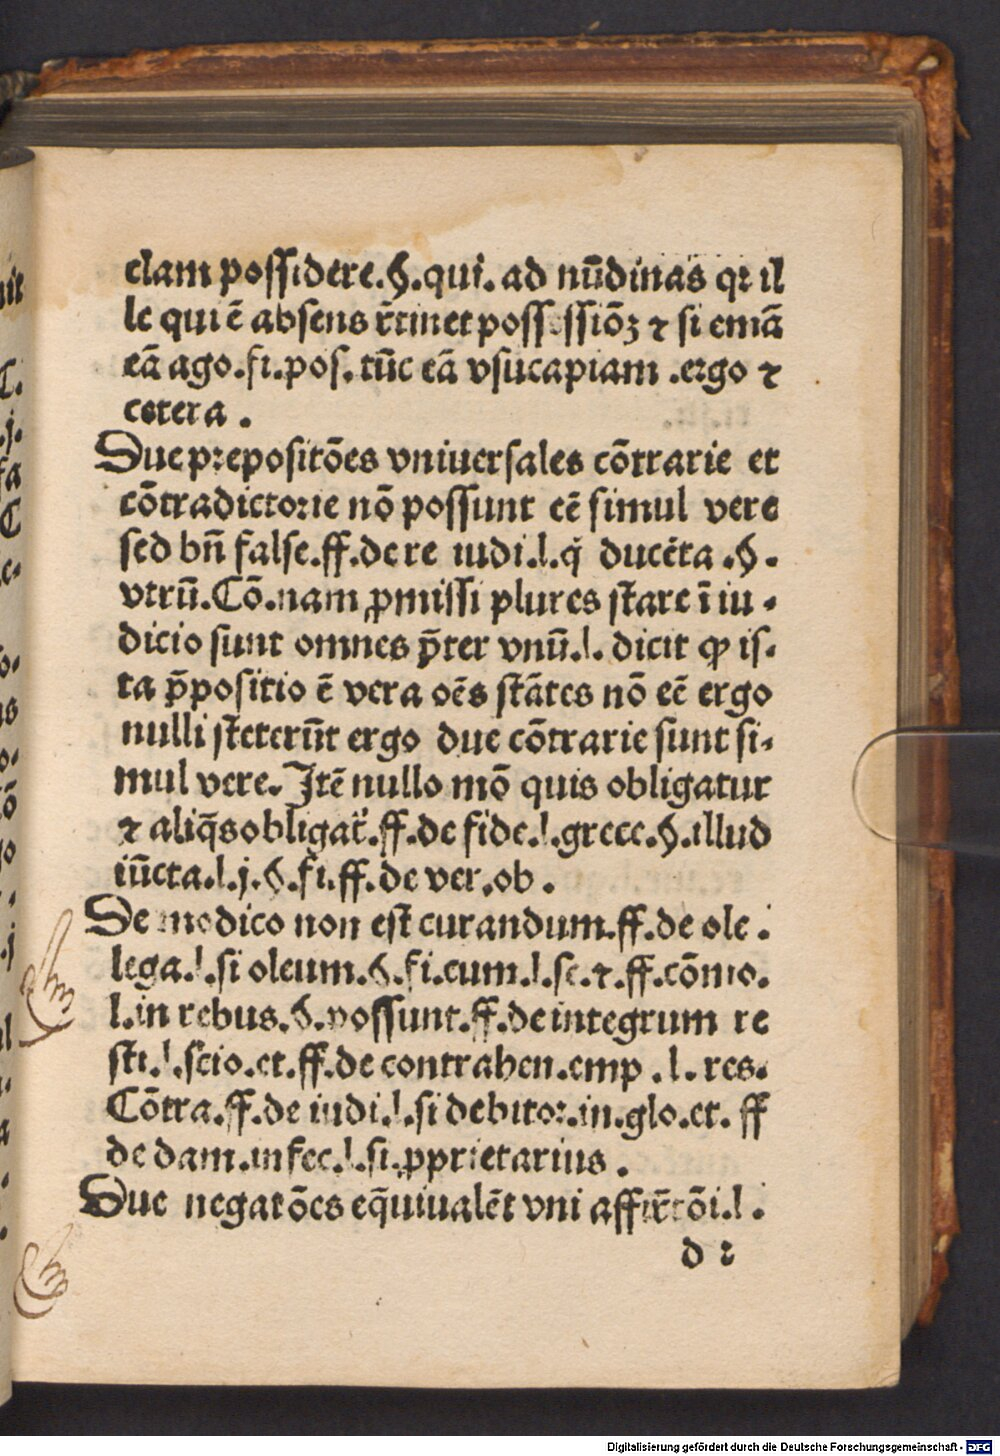 clam possidere.§.qui. ad nūdinas qꝛ il
le qui ē absens r̄tinet possessiōꝫ ⁊ si emā
eā ago.fi.pos. tūc eā vsucapiam .ergo ⁊
cetera .
Due prepositōes vniuersales cōtrarie et
cōtradictorie nō possunt eē simul vere
sed bn̄ false.ff.de re iudi.l.q̄ ducēta .§.
vtrū.Cō.nam ꝓmissi plures stare ī iu⸗
dicio sunt omnes p̄ter vnū.l. dicit ꝙ is⸗
ta p̄positio ē vera oēs stātes nō eē ergo
nulli steterūt ergo due cōtrarie sunt si⸗
mul vere. Itē nullo mō quis obligatur
⁊ aliq̄s obligat̄.ff.de fide.l.grece.§.illud
iūcta.l.j.§.fi.ff.de ver.ob .
De modico non est curandum.ff.de ole .
lega.l.si oleum.§.fi.cum.l.se.⁊.ff.cōmo.
l.in rebus.§.possunt.ff.de integrum re
sti.l.scio.et.ff.de contrahen.emp .l. res.
Cōtra.ff.de iudi.l.si debitor.in.glo.et. ff
de dam.infec.l.si.ꝓprietarius .
Due negatōes eq̄uiualēt vni affir̄tōi.l .
d 2
Digitalisierung gefördert durch die Deutsche Forschungsgemeinschaft - DFG